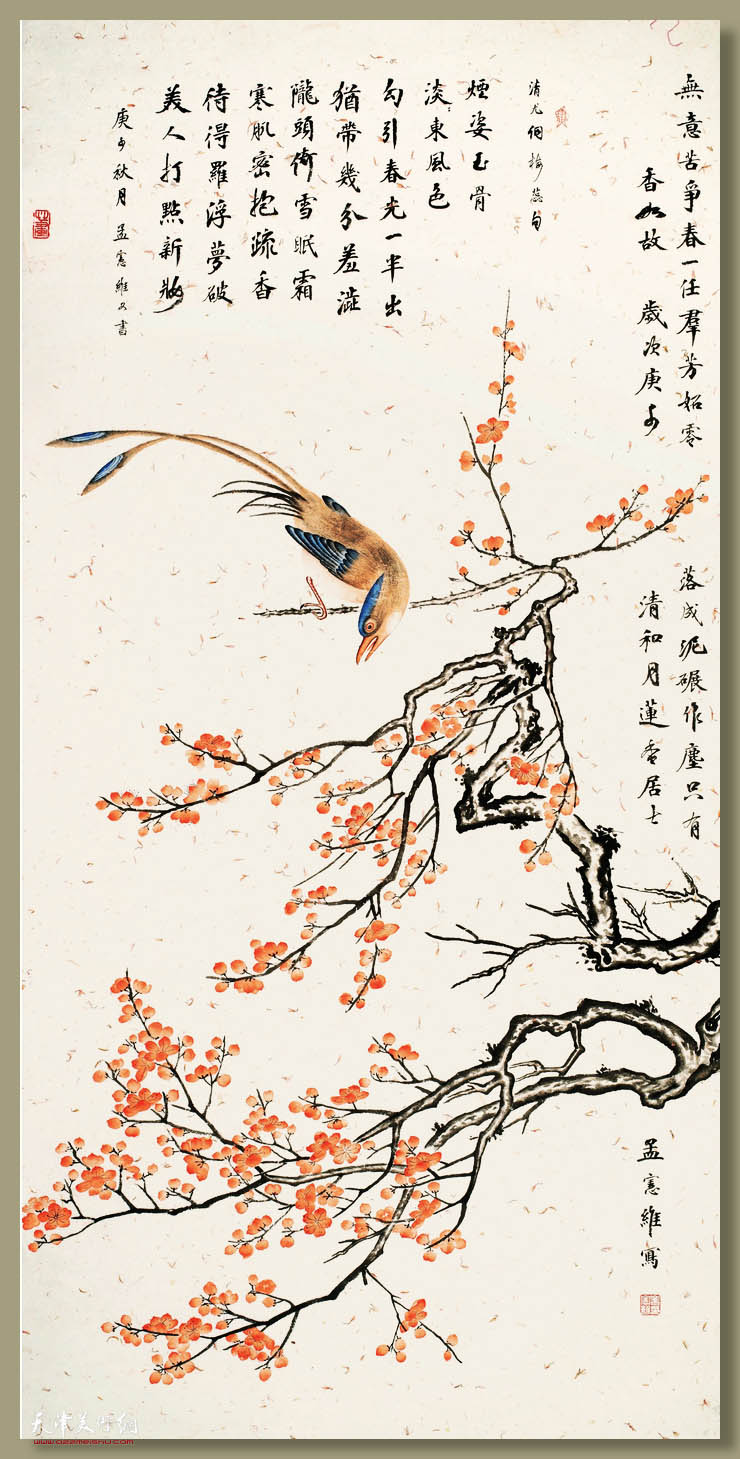 無意苦爭春一任羣芳妬零
落成泥碾作塵只有
香如故
歲次庚午
清和月蓮香居士
清尤侗梅蕊句
煙姿玉骨
淡淡東風色
勾引春光一半出
猶帶幾分羞澀
隴頭倚雪眠霜
寒肌密抱疏香
待得羅浮夢破
美人打點新妝
庚午秋月 孟憲維又書
孟憲維寫
天津美術網